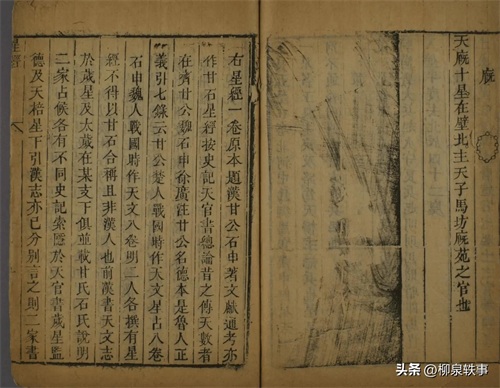 廐
天廐十星在壁北主天子馬坊廐苑之官也
右星經一卷原本題漢甘公石申著文獻通考亦
作甘石星經按史記天官書總論昔之傳天數者
在齊甘公魏石申徐廣注甘公名德本是魯人正
義引七錄云甘公楚人戰國時作天文星占八卷
石申魏人戰國時作天文八卷明二人各撰有星
經不得以甘石合稱且非漢人也前漢書天文志
於歲星及太歲在某支下俱並載甘氏石氏說明
二家占候各有不同史記索隱於天官書歲星監
德及天棓星下引漢志亦已分別言之則二家書
星經
头条 @柳泉轶事